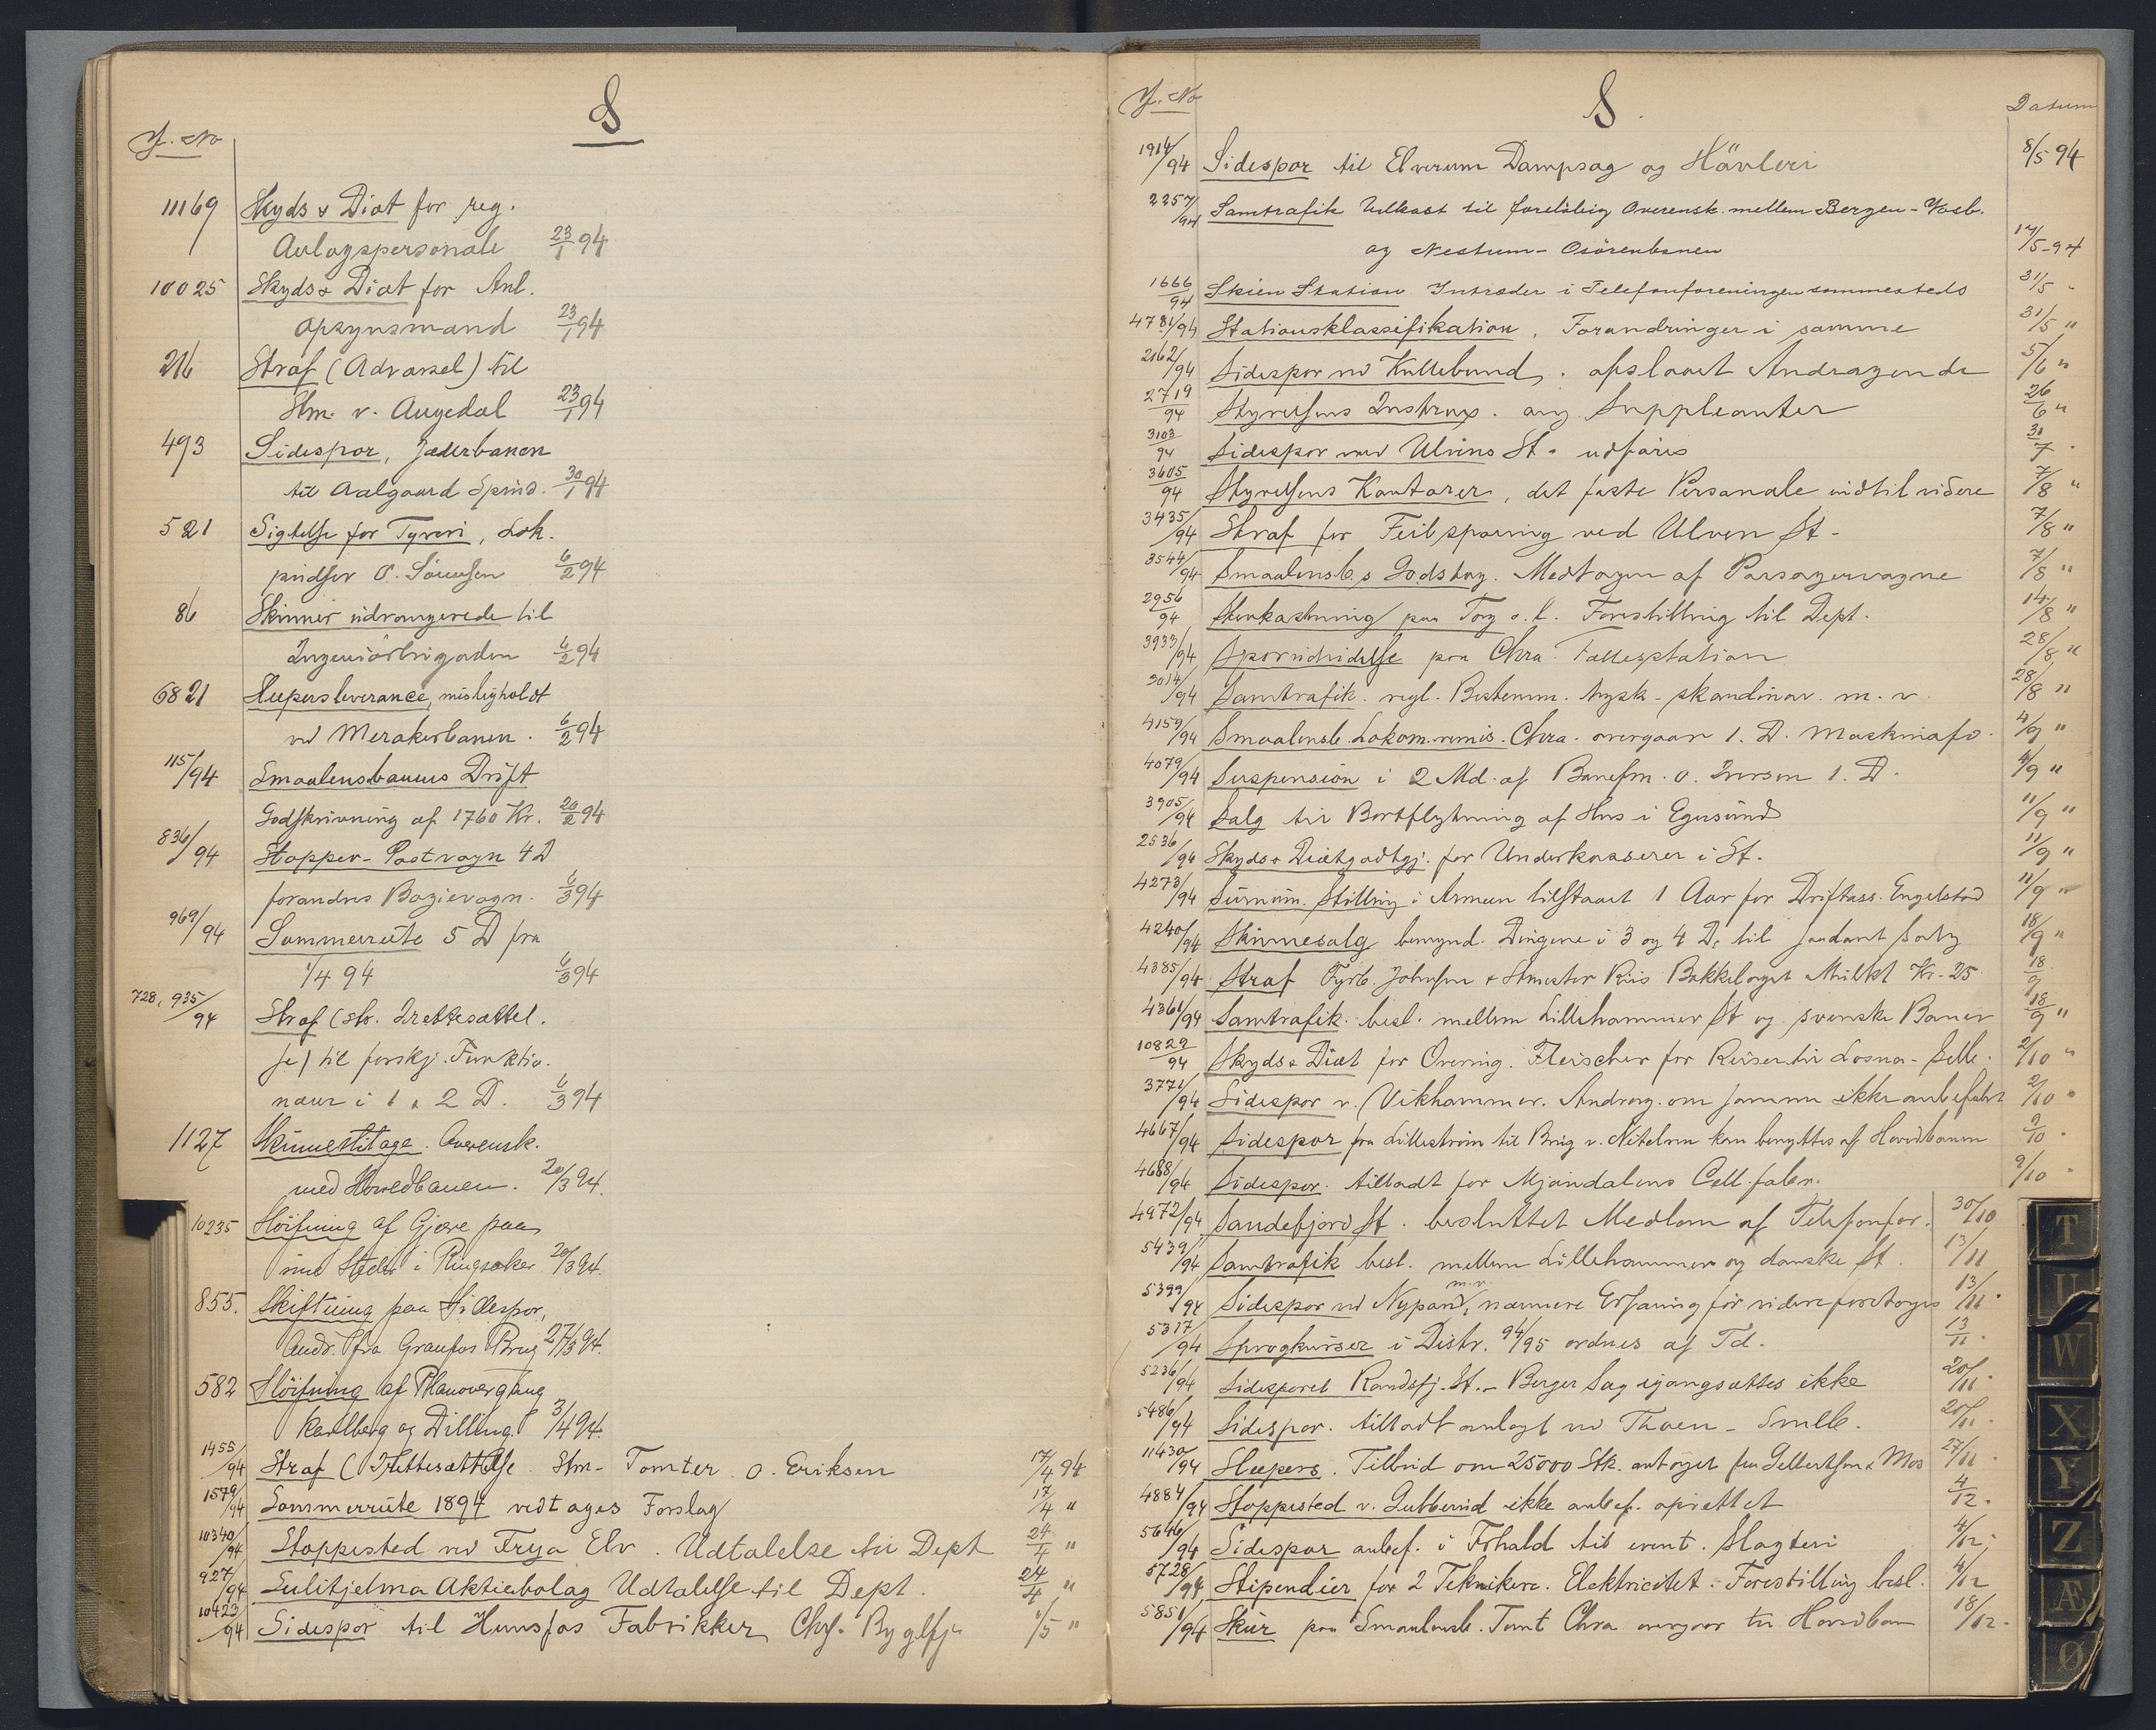 S
J. No
11169 Skyds & Diæt for reg.
Anlægspersonale 23/1 94
10025 Skyds & Diæt for Anl.
opsynsmand 23/1 94
216 Straf (Advarsel) til
Stm. v. Augedal 23/1 94
493 Sidespor, Jæderbanen
til Aalgaard Spind. 30/1 94
521 Sigtelse for Tyveri, Lok.
pudser O. Sörensen 6/2 94
86 Skinner udrangerede til
Ingeniörbrigaden 6/2 94
6821 Sleepersleverance, misligholdt
ved Merakerbanen. 6/2 94
115/94 Smaalensbanens Drift
Godskrivning af 1760 Kr. 20/2 94
836/94 Stopper-Postvogn 4 D
forandres Bogievogn. 6/3 94
969/94 Sommerrute 5 D fra
1/4 94 6/3 94
728, 935/94 Straf (str. Irettesættel.
se) til forskj. Funktio.
nær i 1 & 2 D. 6/3 94
1127 Skinneslitage. Overensk.
med Hovedbanen. 20/3 94.
10235 Slöifning af Gjære paa
nie Steder i Ringsaker 20/3 94.
855. Skiftning paa Sidespor,
Andr. fra Granfos Brug 27/3 94.
582 Slöifning af Planovergang
Karlberg og Dilling. 3/4 94.
1455/94 Straf (Irettesættelse Stm. Tomter O. Eriksen 17/4 94
1579/94 Sommerrute 1894 vedtages Forslag 17/4 "
10340/94 Stoppested ved Frya Elv. Udtalelse til Dept 24/4 "
927/94 Sulitjelma Aktiebolag Udtalelse til Dept. 24/4 "
10423/94 Sidespor til Hunsfos Fabrikker Chrs. Byglfj. 1/5 "
J. No S. Datum
1914/94 Sidespor til Elverum Dampsag og Hävleri 8/5 94
2257/94 Samtrafik Udkast til foreløbig Overensk. mellem Bergen-Voss b.
og Nestun-Osörenbanen 17/5-94
1666/94 Skien Station Intræder i Telefonforeningen sammesteds 31/5 "
4781/94 Stationsklassifikation, Forandringer i samme 31/5 "
2162/94 Sidespor ved Kullebund, afslaaet Andragende 5/6 "
2719/94 Styrelsens Instrux. ang. Suppleanter 26/6 "
3103/94 Sidespor ved Ulvins St. udføres 31/7 "
3605/94 Styrelsens Kontorer, det faste Personale indtil videre 7/8 "
3435/94 Straf for Feilsporing ved Ulven St. 7/8 "
3544/94 Smaalensb.s Godstog. Medtagen af Passagervogne 7/8 "
2956/94 Stenkastning paa Tog o. l. Forestilling til Dept. 14/8 "
3933/94 Sporudvidelse paa Chra Fællesstation 28/8 "
2014/94 Samtrafik. regl. Bestemm. tysk-skandinav. m. v. 28/8 "
4159/94 Smaalensb. Lokom.remis. Chra. overgaar 1. D. Maskinafd. 4/9 "
4079/94 Suspension i 2 Md. af Banefm. O. Iversen 1. D. 4/9 "
3905/94 Salg til Bortflytning af Hus i Egersund 11/9 "
2536/94 Skyds & Diætgodtgj. for Underkasserer i St. 11/9 "
4273/94 Surnum. Stilling i Armeen tilstaaet 1 Aar for Driftsass. Engelstad 11/9 "
4240/94 Skinnesalg bemynd. Dirigene i 3 og 4 D. til saadant salg 18/9 "
4385/94 Straf Fyrb. Johnsen & Stmester Riis Bakkelaget Mulkt Kr. 25 18/9
4361/94 Samtrafik. besl. mellem Lillehammer St og svenske Baner 18/9 "
10829/94 Skyds & Diæt for Overing. Fleischer for Reiser til Losna-Selle. 2/10 "
3771/94 Sidespor v. Vikhammer. Andrag. om samme ikke anbefalet 2/10 "
4667/94 Sidespor fra Lilleström til Brug v. Nitelven kan benyttes af Hovedbanen 9/10 "
4688/94 Sidespor. tilladt for Mjøndalens Cell. fabr. 9/10 "
4972/94 Sandefjord St. besluttet Medlem af Telefonfor. 30/10
5439/94 Samtrafik besl. mellem Lillehammer og danske St. 13/11
5399/94 Sidespor ved Nypan m. v., nærmere Erfaring før videre foretages 13/11 "
5317/94 Sprogkurser i Distr. 94/95 ordnes af Td. 13/11 "
5236/94 Sidesporet Randsfj. St. - Berger Sag igangsættes ikke 20/11 "
5486/94 Sidespor. tilladt anlagt ved Thoen - Smlb. 20/11 "
11430/94 Sleepers. Tilbud om 25000 Stk. antaget fra Gellertsen & Mos 27/11 "
4884/94 Stoppested v. Gubberud ikke anbef. oprettet 4/12 "
5646/94 Sidespor anbef. i Frhald til event. Slagteri 4/12 "
5728/94 Stipendier for 2 Teknikere. Elektricitet. Forestilling besl. 4/12
5851/94 Skur paa Smaalensb. Tomt Chra overgaar til Hovedban 18/12 "
T
U
W
X
Y
Z
Æ
Ø